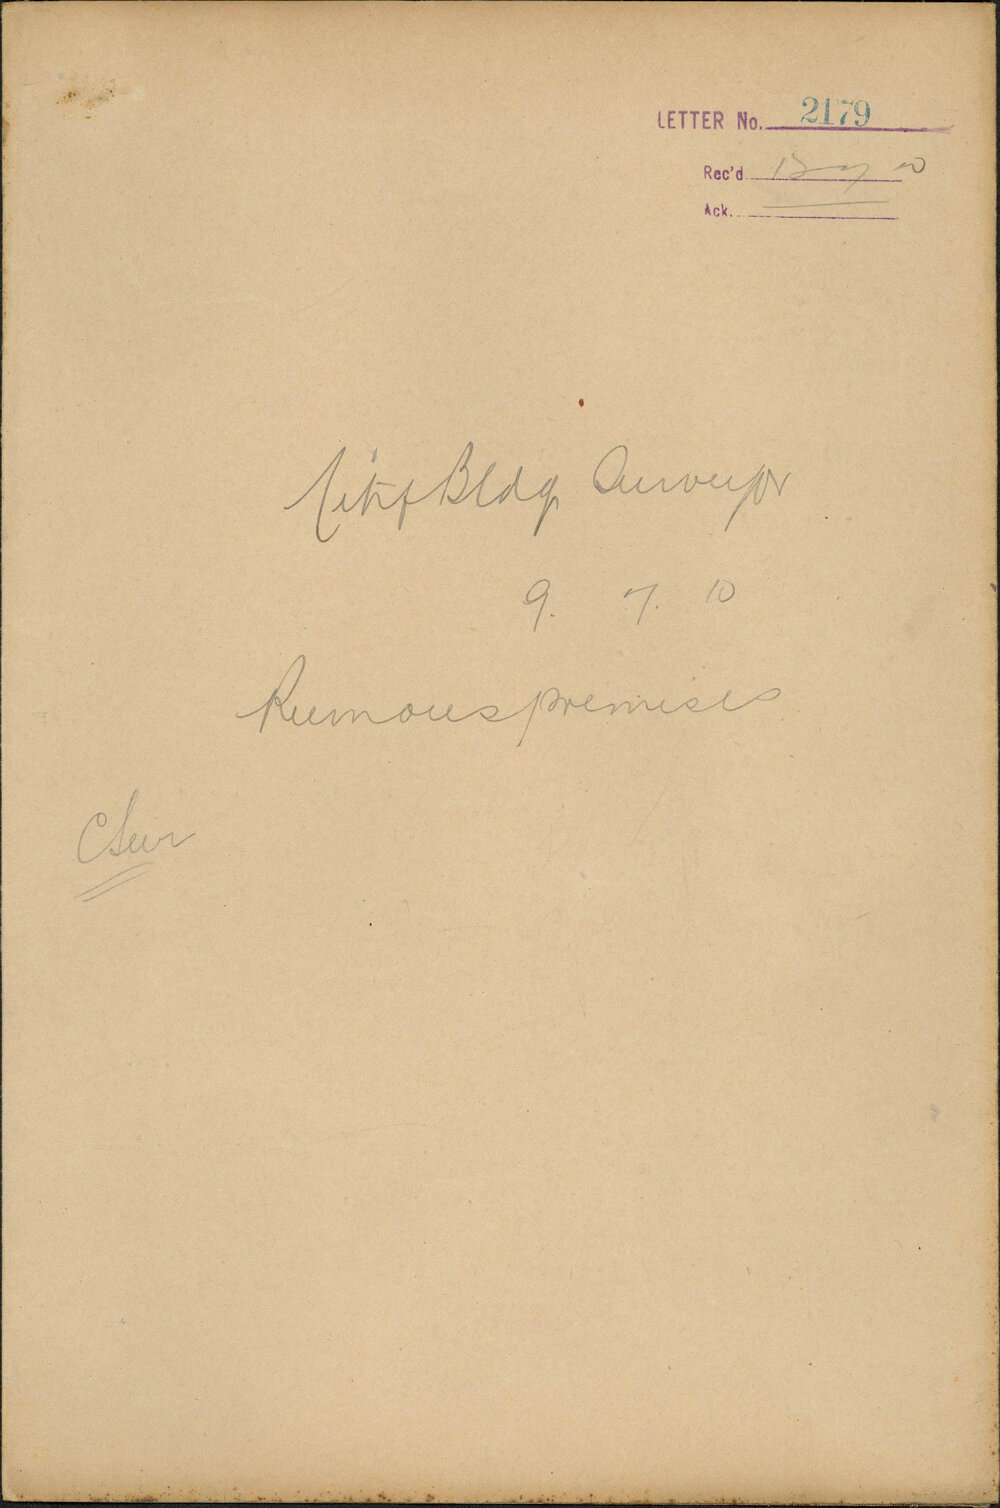 LETTER No. 2179
Rec'd
Ack.
City Bldg Surveyor
9. 7. 10
premises
C Surv